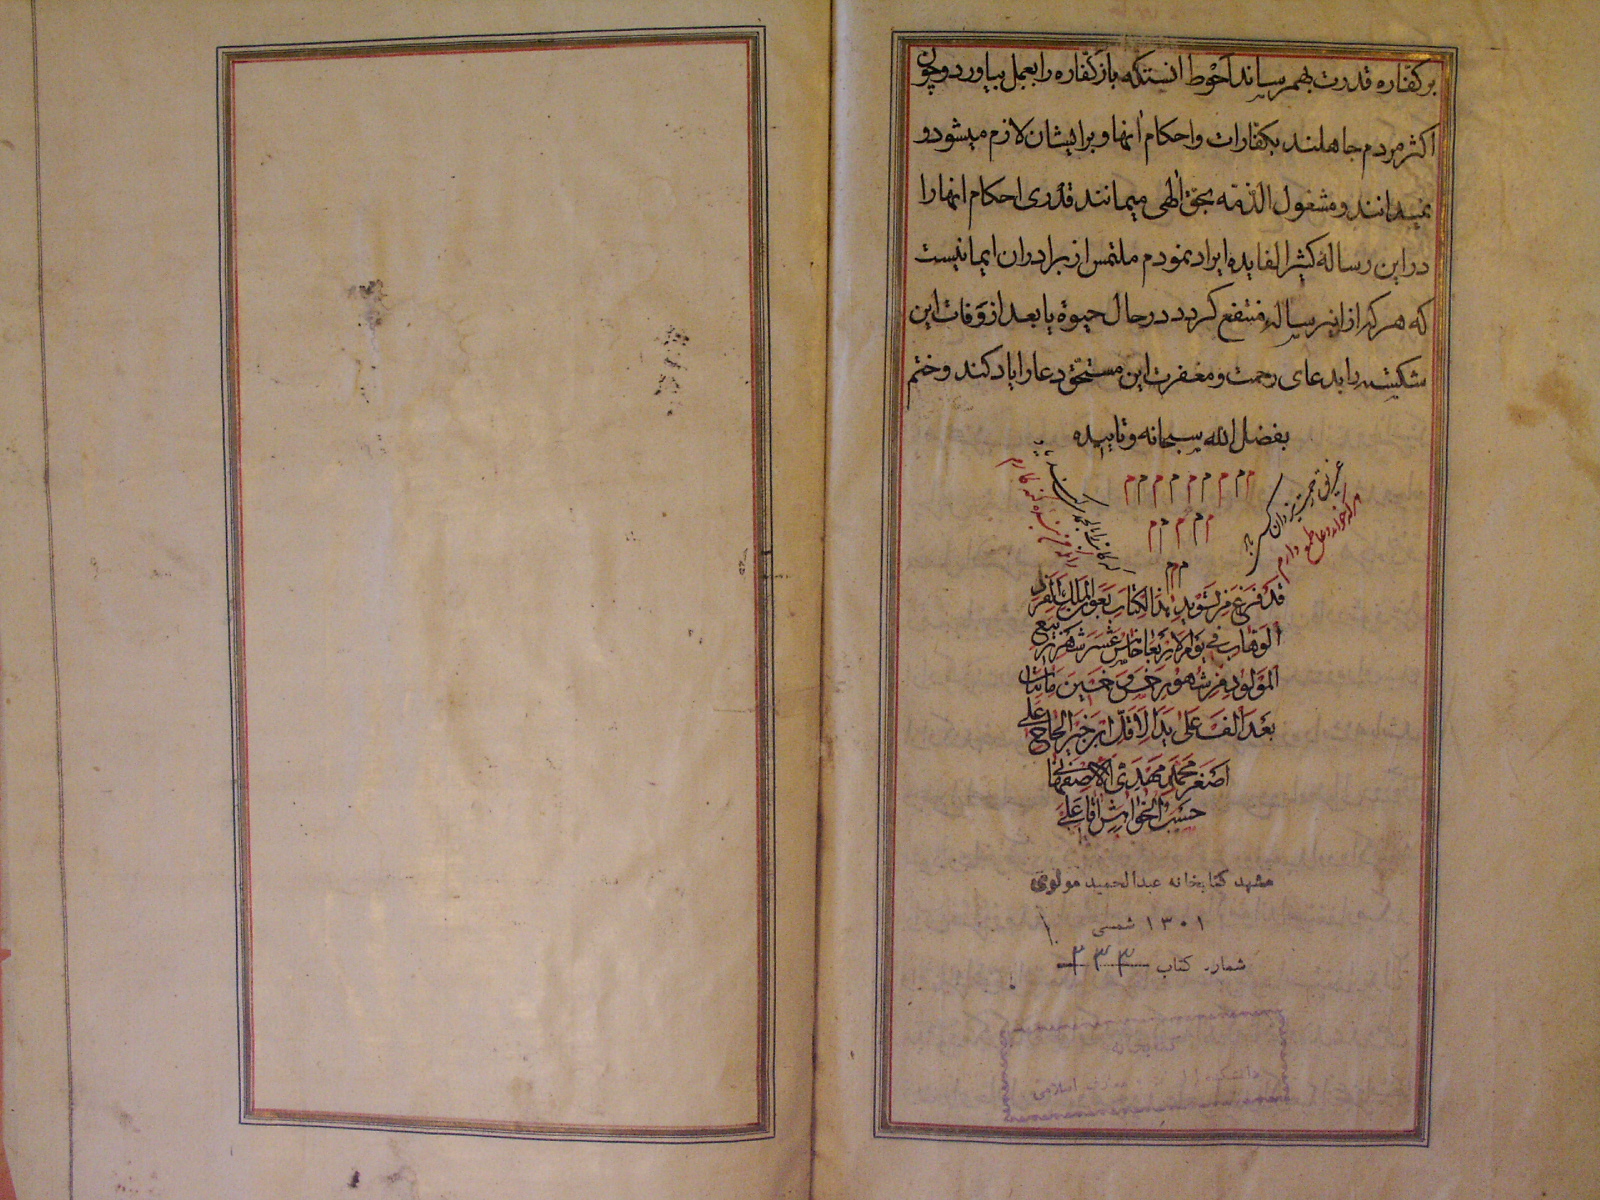 بر کفّاره قدرت بهمرساند احوط انستکه باز کفّاره را بعمل بیاورد و چون
اکثر مردم جاهلند بکفّارات و احکام انها و بر ایشان لازم میشود و
نمیدانند و مشغول الذّمّه بحق الٰهی میمانند قدری احکام انها را
در این رساله کثیر الفایده ایراد نمودم ملتمس از برادران ایمانیست
که هر که از این رساله منتفع کردد در حال حیوة یا بعد از وفات این
شکسته را بدعای رحمت و مغفرت این مستحق دعا را یاد کند و ختم
بفضل الله سبحانه و تاییده
م م م م م م م م م
م م م م م
م م
هر که خواند دعا طمع دارم
زانکه من بنده گنه کارم
قد فرغ من تسوید هذا الکتاب بعون الملک
الوهاب فی یوم الاربعا خامس عشر شهر ربیع
المولود من شهور
بعد الف علی ید الاقل الحاج علی
اصغر محمد مهدی الاصفهانی
حسب الخواهش
مشهد کتابخانه عبدالحمید مولوی
۱۳۰۱ شمسی
شماره کتاب ۲۳۳